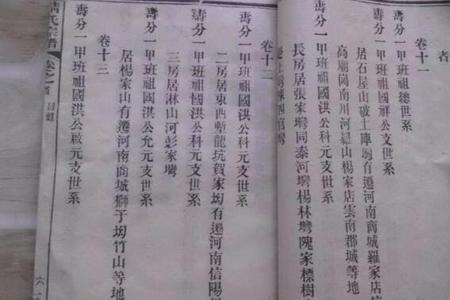 卷十一
壽分一甲班祖總世系
壽分一甲班祖國祥公文世系
居石屋山破土庫㘭有遷河南商城羅家店
高廟崗南川河經山楊家店雲南郡城等地
壽分一甲班祖國洪公科元支世系
長房居張家塆同泰河塆楊林塆隗家標樹
卷十二
壽分一甲班祖國洪公科元支世系
二房居東西塹龍坑賀家㘭有遷河南信陽
壽分一甲班祖國洪公科元支世系
三房居淋山河彭家塆
壽分一甲班祖國洪公允元支世系
卷十三
壽分一甲班祖國洪公啟元支世系
居楊家山有遷河南商城獅子㘭竹山等地
氏宗譜
卷之首
目錄
六